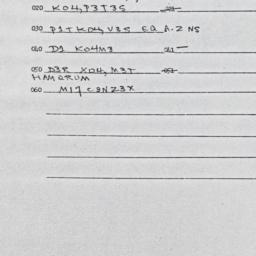 020 KO4,P3T3S
030 P1TKO4,V3S EQ A.Z NS
040 D1 KO4M3
050 D3R XO4,M3T
HAMQRUM
060 M17C9NZ3X